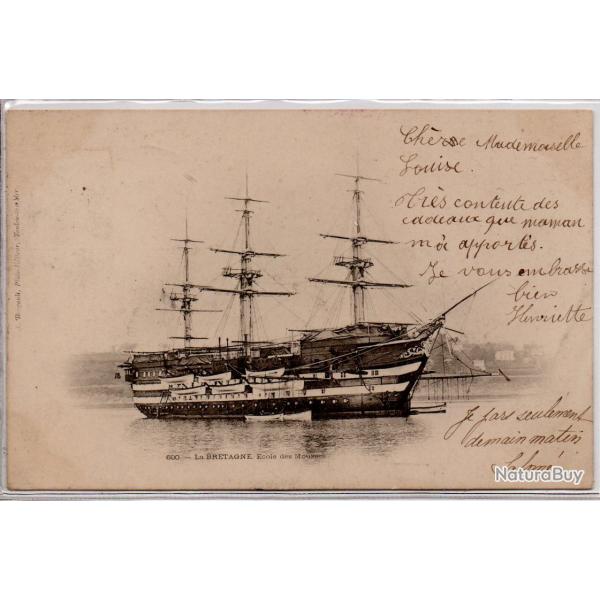 Chère Mademoiselle
Louise.
Très contente des
cadeaux que maman
m'a apportés.
Je vous embrasse
bien
Henriette
Je pars seulement
demain matin
600 - La BRETAGNE. Ecole des Mousses
NaturaBuy